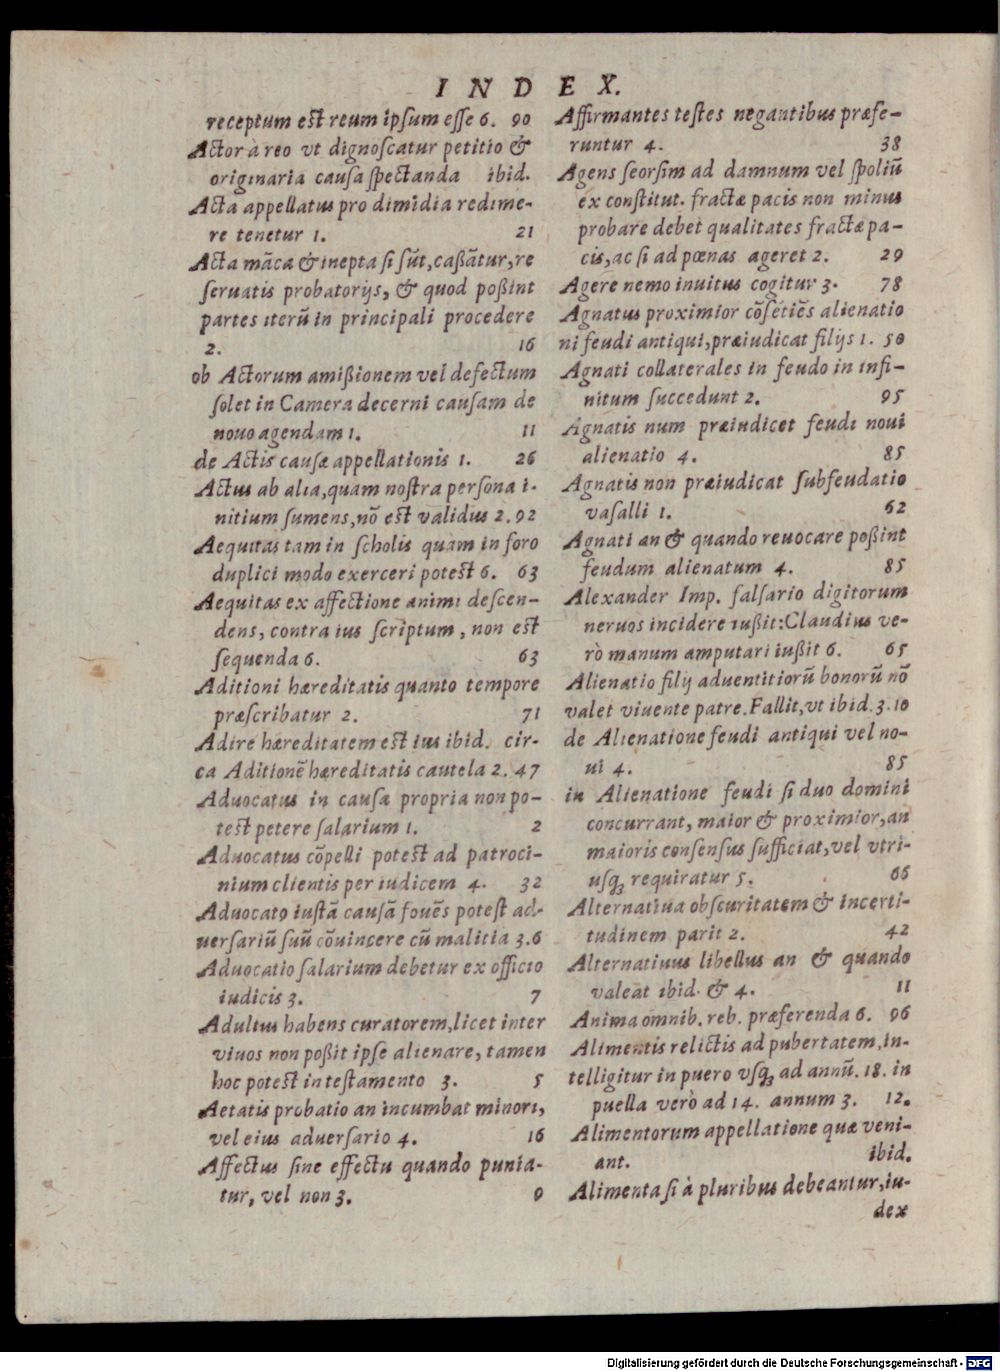 INDEX.
receptum est reum ipsum esse 6. 90
Actor à reo vt dignoscatur petitio &
originaria causa spectanda ibid.
Acta appellatus pro dimidia redime-
re tenetur 1. 21
Acta māca & inepta si sūt, caßātur, re
seruatis probatorijs, & quod poßint
partes iterū in principali procedere
2. 16
ob Actorum amißionem vel defectum
solet in Camera decerni causam de
nouo agendam 1. 11
de Actis causæ appellationis 1. 26
Actus ab alia, quam nostra persona i-
nitium sumens, nō est validus 2. 92
Aequitas tam in scholis quàm in foro
duplici modo exerceri potest 6. 63
Aequitas ex affectione animi descen-
dens, contra ius scriptum, non est
sequenda 6. 63
Aditioni hæreditatis quanto tempore
præscribatur 2. 71
Adire hæreditatem est ius ibid. cir-
ca Aditionē hæreditatis cautela 2. 47
Aduocatus in causa propria non po-
test petere salarium 1. 2
Aduocatus cōpelli potest ad patroci-
nium clientis per iudicem 4. 32
Aduocato iustā causā fouēs potest ad-
uersariū suū cōuincere cū malitia 3. 6
Aduocatio salarium debetur ex officio
iudicis 3. 7
Adultus habens curatorem, licet inter
viuos non poßit ipse alienare, tamen
hoc potest in testamento 3. 5
Aetatis probatio an incumbat minori,
vel eius aduersario 4. 16
Affectus sine effectu quando punia-
tur, vel non 3. 9
Affirmantes testes negantibus præfe-
runtur 4. 38
Agens seorsim ad damnum vel spoliū
ex constitut. fractæ pacis non minus
probare debet qualitates fractæ pa-
cis, ac si ad pœnas ageret 2. 29
Agere nemo inuitus cogitur 3. 78
Agnatus proximior cōsētiēs alienatio
ni feudi antiqui, præiudicat filijs 1. 50
Agnati collaterales in feudo in infi-
nitum succedunt 2. 95
Agnatis num præiudicet feudi noui
alienatio 4. 85
Agnatis non præiudicat subfeudatio
vasalli 1. 62
Agnati an & quando reuocare poßint
feudum alienatum 4. 85
Alexander Imp. falsario digitorum
neruos incidere iußit: Claudius ve-
rò manum amputari iußit 6. 65
Alienatio filij aduentitiorū bonorū nō
valet viuente patre. Fallit, vt ibid. 3. 10
de Alienatione feudi antiqui vel no-
ui 4. 85
in Alienatione feudi si duo domini
concurrant, maior & proximior, an
maioris consensus sufficiat, vel vtri-
usq; requiratur 5. 66
Alternatiua obscuritatem & incerti-
tudinem parit 2. 42
Alternatiuus libellus an & quando
valeat ibid. & 4. 11
Anima omnib. reb. præferenda 6. 96
Alimentis relictis ad pubertatem, in-
telligitur in puero vsq; ad annū. 18. in
puella verò ad 14. annum 3. 12.
Alimentorum appellatione quæ veni-
ant. ibid.
Alimenta si à pluribus debeantur, iu-
dex
Digitalisierung gefördert durch die Deutsche Forschungsgemeinschaft - DFG